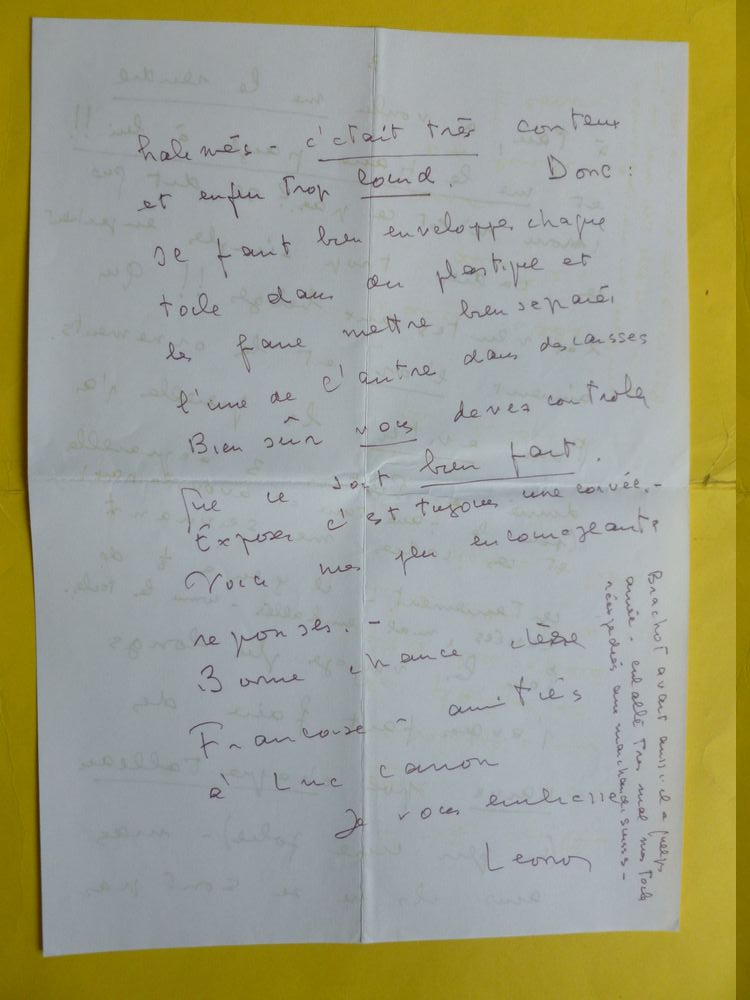 halimés - c'était très conteux
et enfin trop lourd. Donc:
Il faut bien envelopper chaque
toile dans du plastique et
les faire mettre bien separés
l'une de l'autre dans des caisses
Bien sûr vous devez controler
que ce soit bien fait.
Exposer c'est tujours une corvée.-
Voici mes peu encourageants
reponses. -
Bonne chance chère
Françoise amitiés
à Luc canon
Je vous embrasse
Leonor
Brachot avait aussi il a quelqs
année - emballé tres mal mes toile
réexpediés aux marchands suisses -